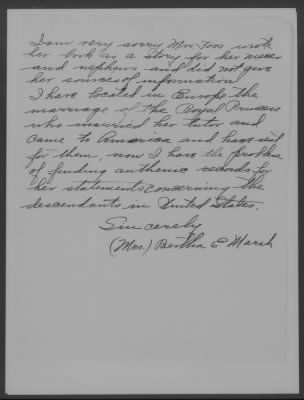 I am very sorry Mrs. Foos wrote
her book as a story for her nieces
and nephews and did not give
her sources of information
I have located in Europe the
marriage of the Royal Princess
who married her tutor and
came to America and have
for them, now I have the problem
of finding authentic records for
her statements concerning the
descendants in United States.
Sincerely
(Mrs.) Bertha E Marsh